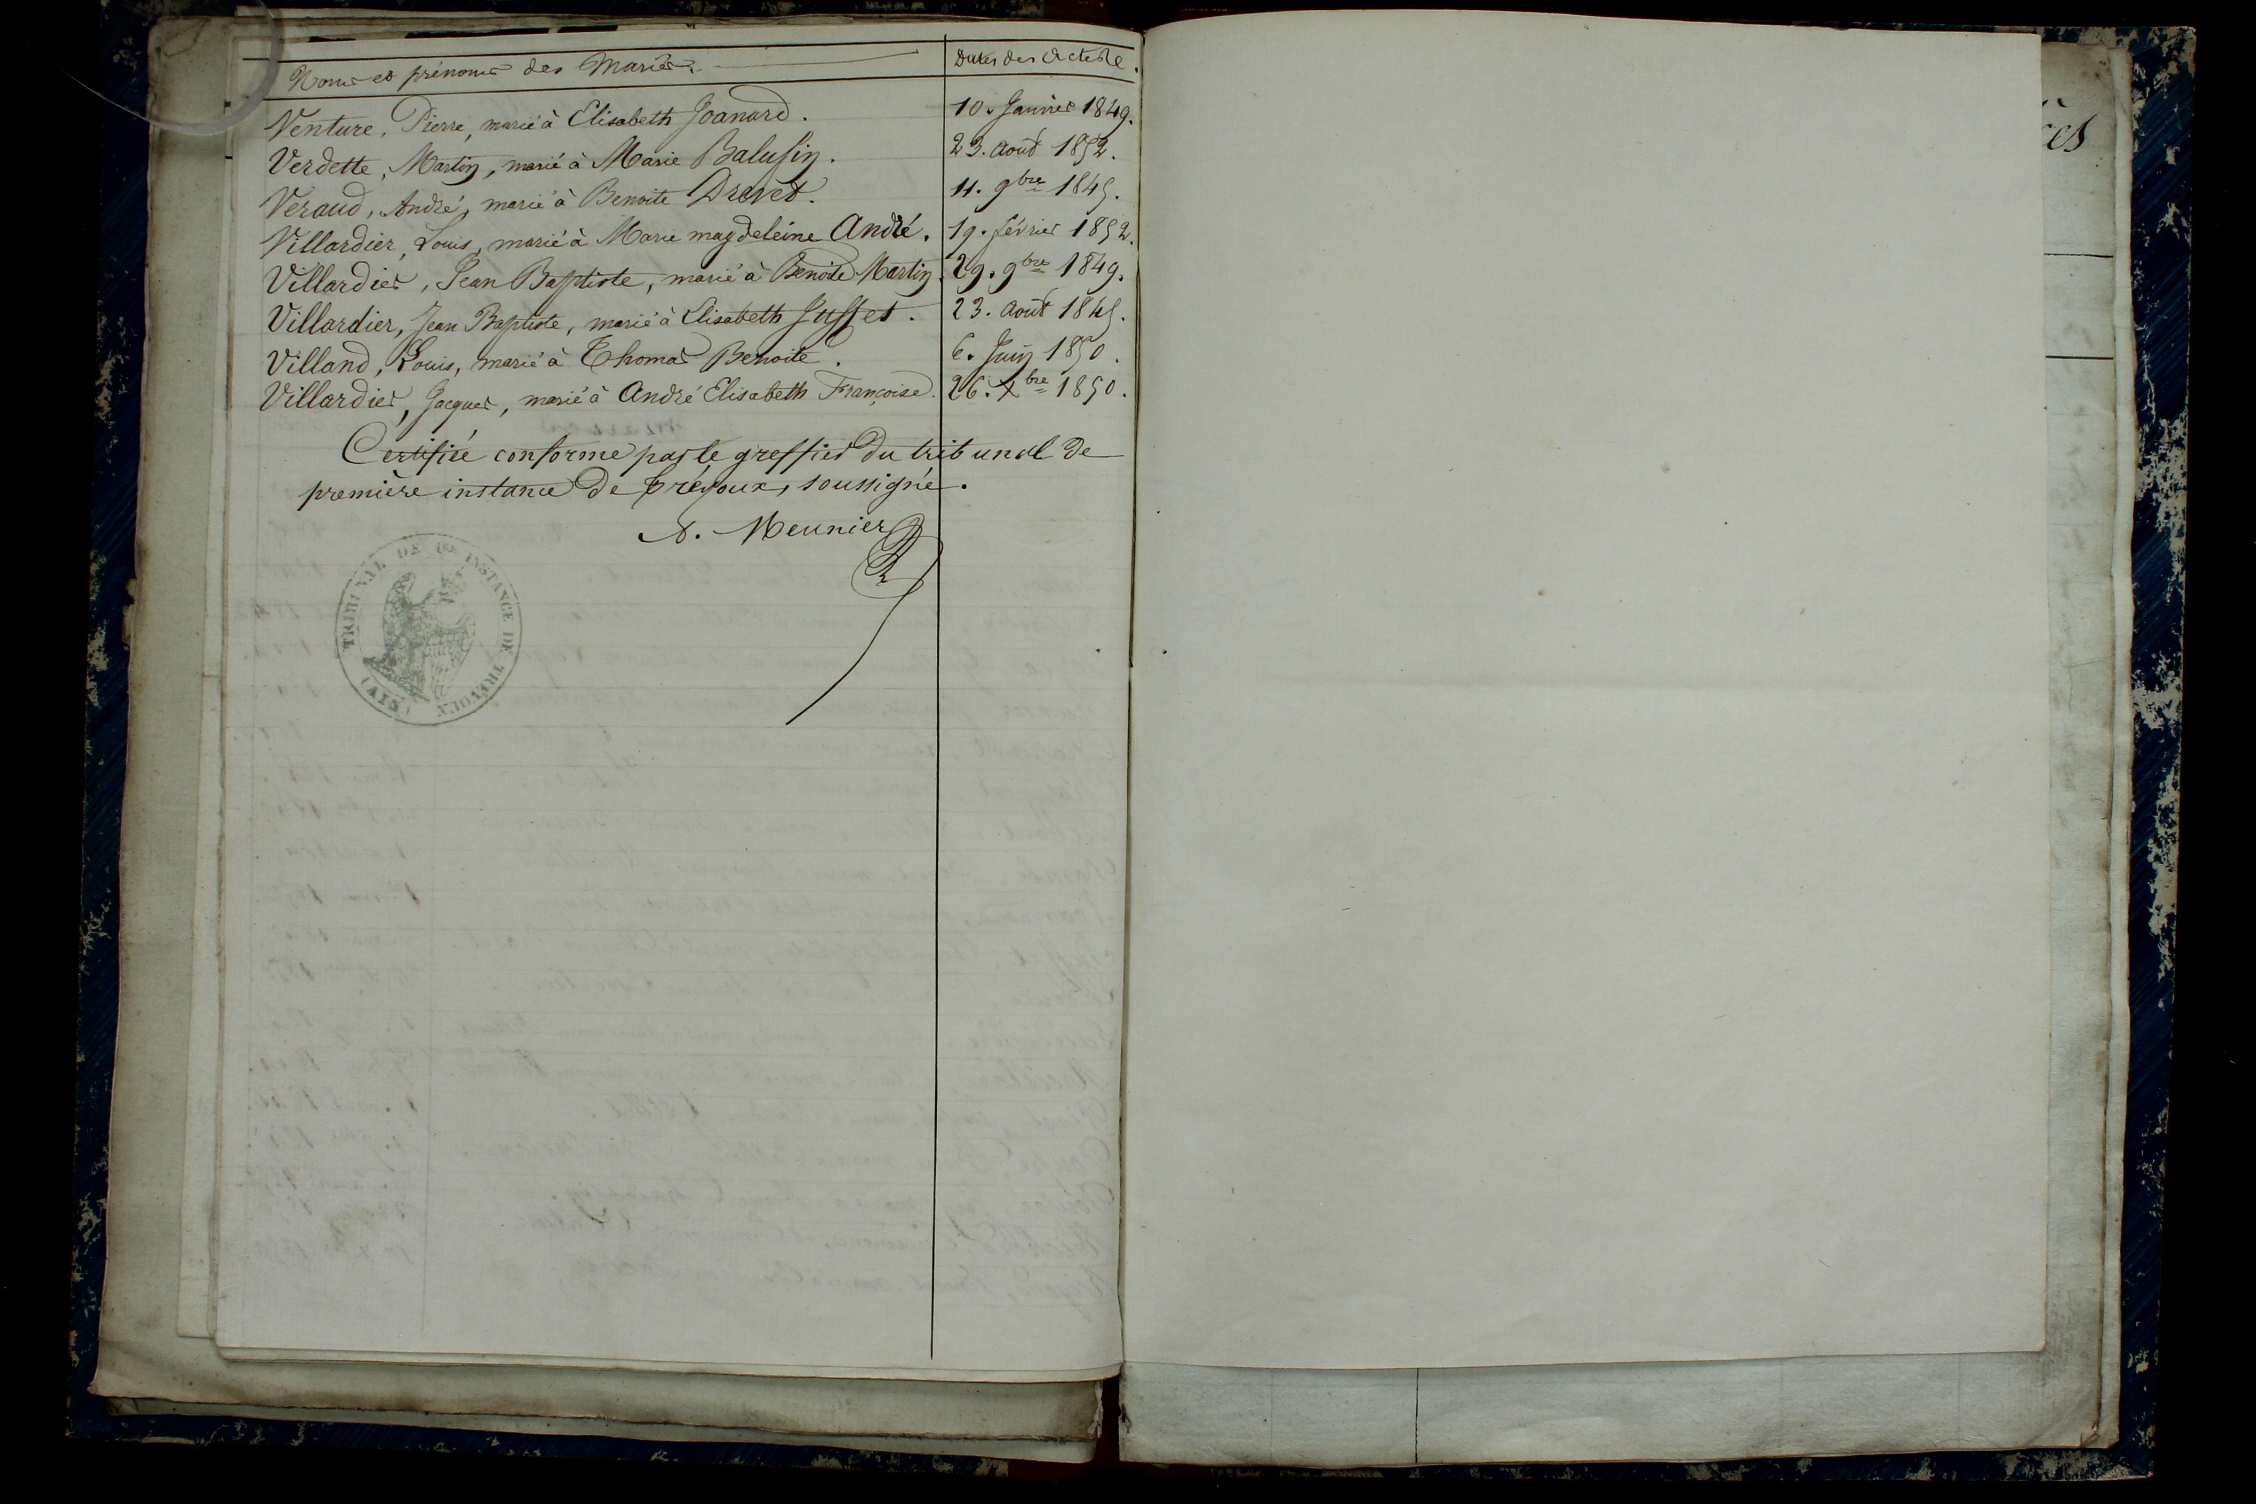 Noms et prénoms des Mariés. Dates des Actes
Venture, Pierre, marié à Elisabeth Joanard. 10. Janvier 1849.
Verdette, Martin, marié à Marie Balufin. 23. Août 1852.
Veraud, André, marié à Benoite Drevet. 11. 9bre 1845.
Villardier, Louis, marié à Marie magdeleine André. 19. février 1852.
Villardier, Jean Baptiste, marié à Benoite Martin. 29. 9bre 1849.
Villardier, Jean Baptiste, marié à Elisabeth Juffet. 23. Août 1845.
Villand, Louis, marié à Thomas Benoite. 6. Juin 1850.
Villardier, Jacques, marié à André Elisabeth Françoise. 26. Xbre 1850.
Certifié conforme par le greffier du tribunal de
première instance de Trévoux, soussigné.
A. Meunier
TRIBUNAL DE 1ère INSTANCE DE TRÉVOUX (AIN)